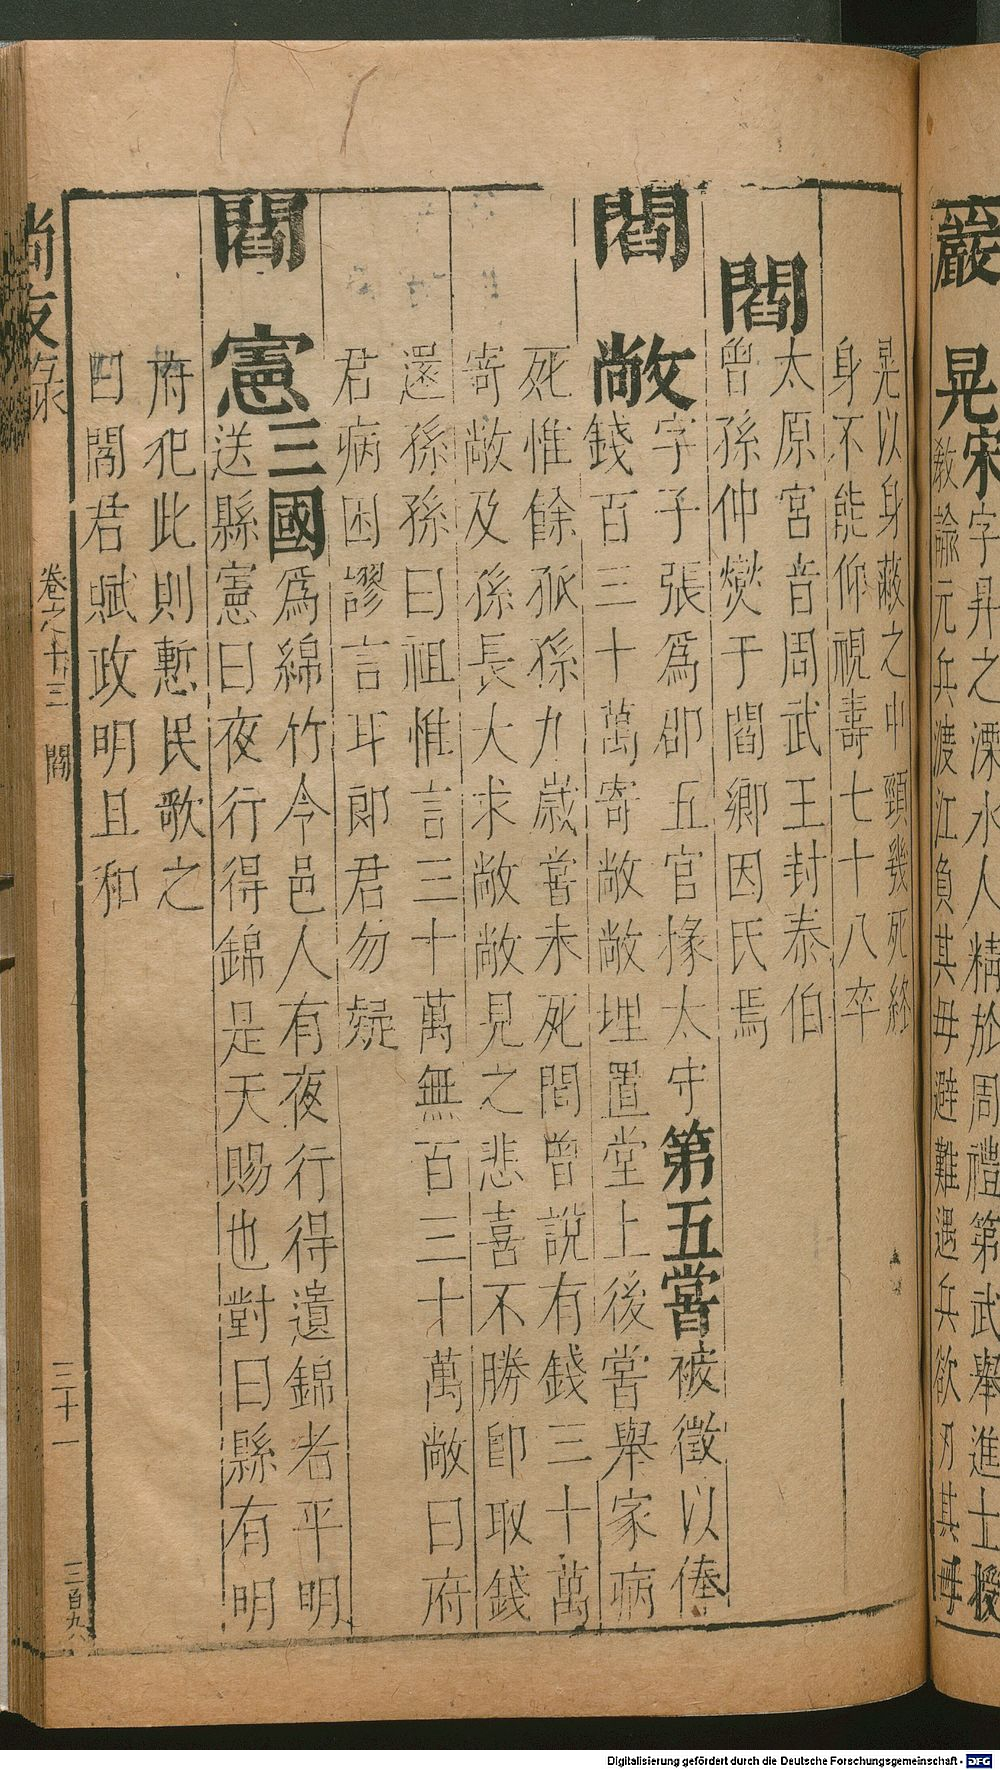 巖 晃宋字昇之溧水人精於周禮第武舉進士授
教諭元兵渡江負其母避難遇兵欲刃其母
晃以身蔽之中頸幾死終
身不能仰視壽七十八卒
閻
太原宮音周武王封泰伯
曾孫仲燮于閻鄉因氏焉
閻 敞字子張爲郡五官掾太守第五嘗被徵以俸
錢百三十萬寄敞敞埋置堂上後嘗舉家病
死惟餘孤孫九歲嘗未死間曾說有錢三十萬
寄敞及孫長大求敞敞見之悲喜不勝卽取錢
還孫孫曰祖惟言三十萬無百三十萬敞曰府
君病困謬言耳郎君勿疑
閻 憲三國爲綿竹令邑人有夜行得遺錦者平明
送縣憲曰夜行得錦是天賜也對曰縣有明
府犯此則慙民歌之
曰閻君賦政明且和
尚友錄 卷之十三 閻 三十一 三百九八
Digitalisierung gefördert durch die Deutsche Forschungsgemeinschaft - DFG